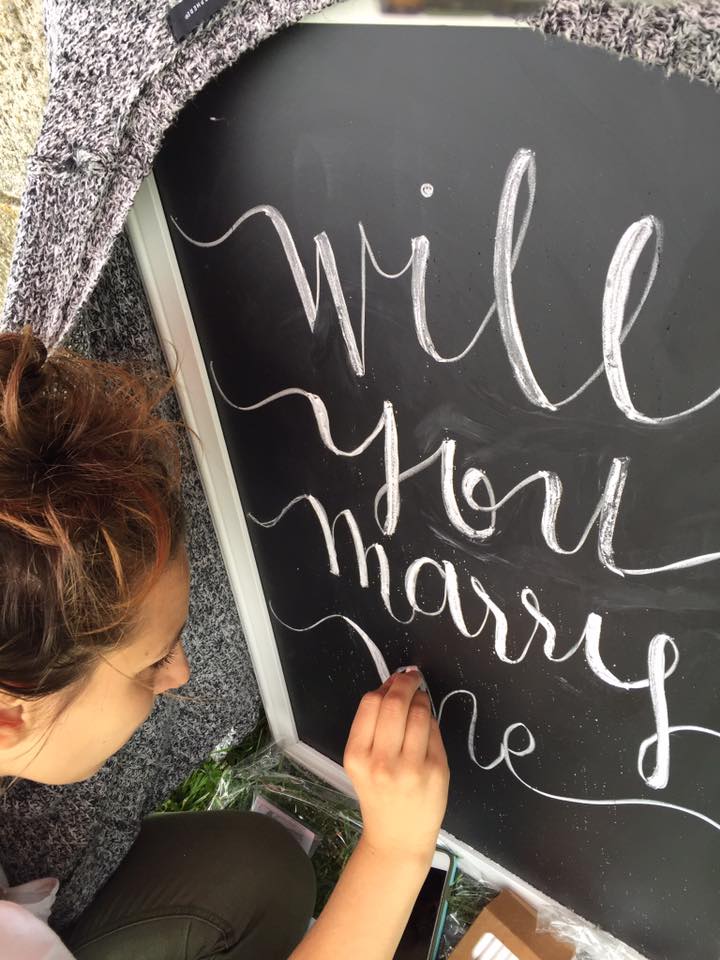 will
you
marry
me